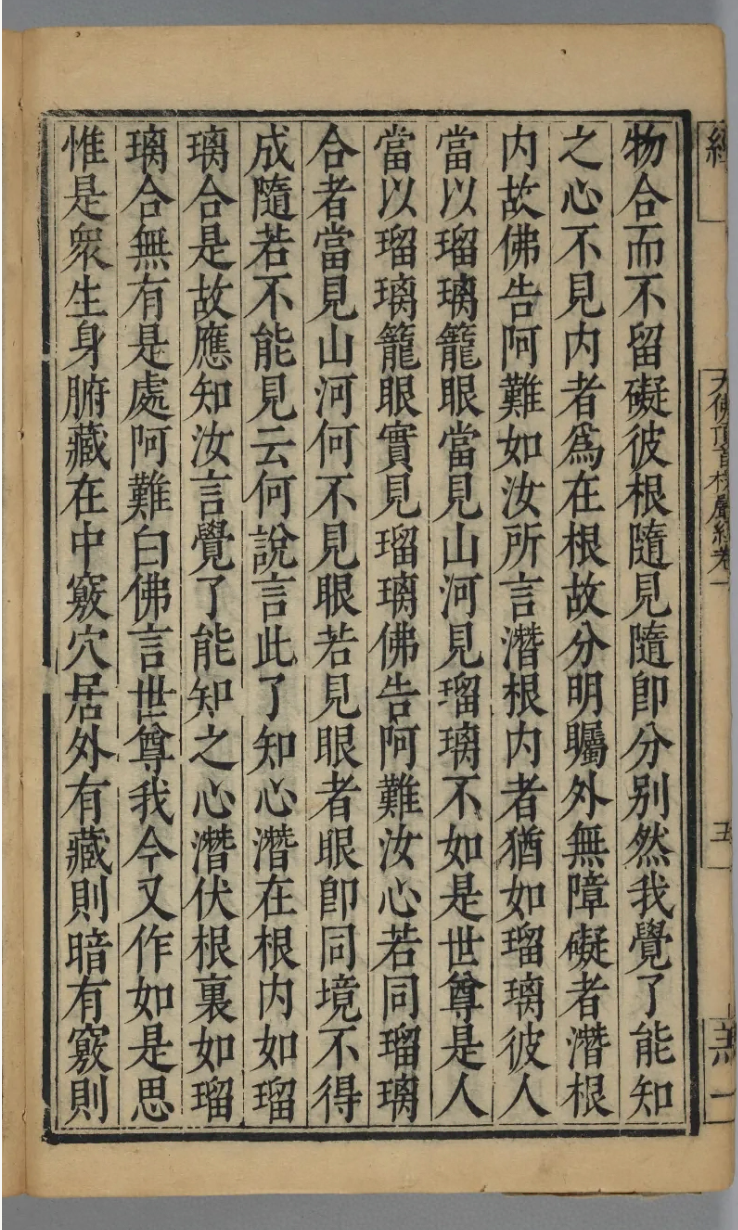 物合而不留礙彼根隨見隨卽分別然我覺了能知
之心不見内者爲在根故分明矚外無障礙者潛根
内故佛告阿難如汝所言潛根内者猶如瑠璃彼人
當以瑠璃籠眼當見山河見瑠璃不如是世尊是人
當以瑠璃籠眼實見瑠璃佛告阿難汝心若同瑠璃
合者當見山河何不見眼若見眼者眼卽同境不得
成隨若不能見云何說言此了知心潛在根内如瑠
璃合是故應知汝言覺了能知之心潛伏根裏如瑠
璃合無有是處阿難白佛言世尊我今又作如是思
惟是衆生身腑藏在中竅穴居外有藏則暗有竅則